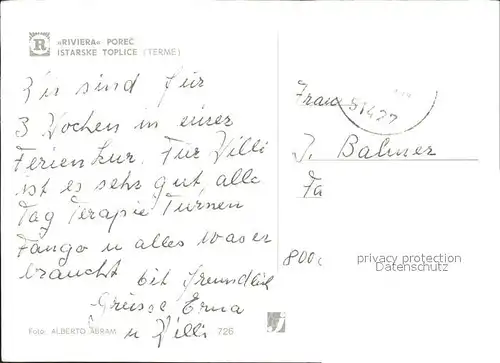 »RIVIERA« POREČ
ISTARSKE TOPLICE (TERME)
Wir sind für
3 Wochen in einer
Ferienkur. Für Willi
ist es sehr gut, alle
Tag Terapie Turnen
Fango u alles was er
braucht bit freundlich
Grüsse Erna
u Willi
Foto: ALBERTO ABRAM 726
51427
Frau
J. Balmer
Fa
800
privacy protection
Datenschutz